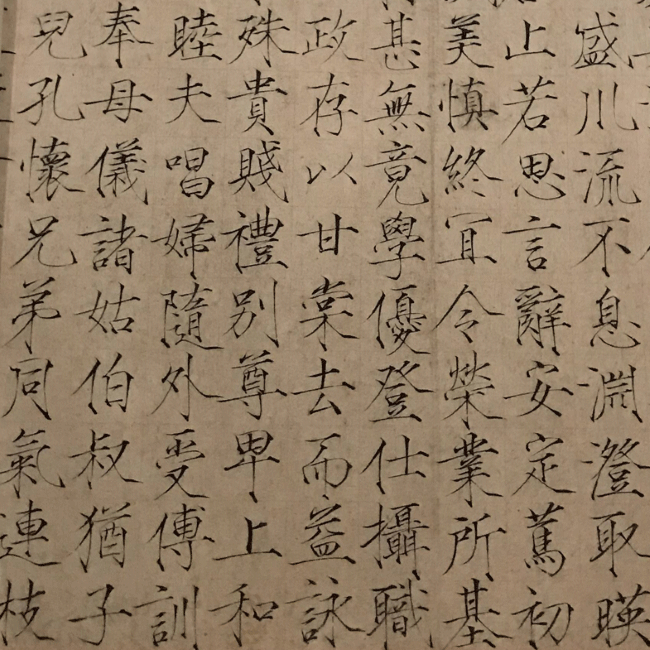 盛川流不息淵澄取暎
止若思言辭安定篤初
美慎終宜令榮業所基
甚無竟學優登仕攝職
政存以甘棠去而益詠
殊貴賤禮別尊卑上和
睦夫唱婦隨外受傅訓
奉母儀諸姑伯叔猶子
兒孔懷兄弟同氣連枝